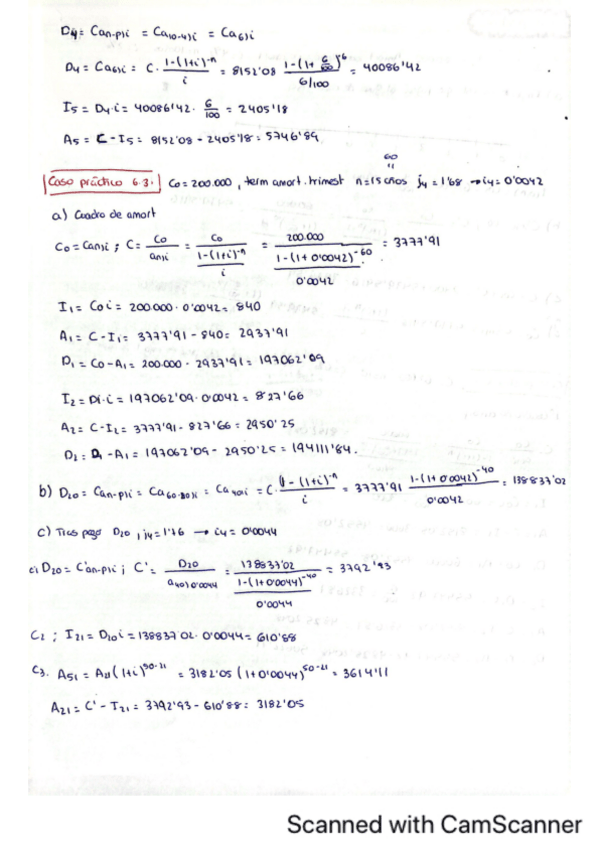 D4 = Can-p)i = Ca10-4)i = Ca6)i
D4 = Ca6)i = C · 1-(1+i)^-n / i = 8152'08 1-(1+ 6/100)^-6 / 6/100 = 40086'42
I5 = D4·i = 40086'42 · 6/100 = 2405'18
A5 = C - I5 = 8152'08 - 2405'18 = 5746'89
60
Caso práctico 6.3. Co = 200.000, term amort. trimest n = 15 años j4 = 1'68 → i4 = 0'0042
a) Cuadro de amort
Co = Can)i ; C = Co / an)i = Co / 1-(1+i)^-n / i = 200.000 / 1-(1+0'0042)^-60 / 0'0042 = 3777'91
I1 = Co i = 200.000 · 0'0042 = 840
A1 = C - I1 = 3777'91 - 840 = 2937'91
D1 = Co - A1 = 200.000 - 2937'91 = 197062'09
I2 = D1·i = 197062'09 · 0'0042 = 827'66
A2 = C - I2 = 3777'91 - 827'66 = 2950'25
D2 = D1 - A1 = 197062'09 - 2950'25 = 194111'84.
b) D20 = Can-p)i = Ca60-20)i = Ca40)i = C · 1-(1+i)^-n / i = 3777'91 1-(1+0'0042)^-40 / 0'0042 = 138837'02
c) Tras pago D20, j4 = 1'76 → i4 = 0'0044
c1 D20 = C'an-p)i ; C' = D20 / a40)0'0044 = 138837'02 / 1-(1+0'0044)^-40 / 0'0044 = 3792'93
C2 ; I21 = D20 i = 138837'02 · 0'0044 = 610'88
C3. A51 = A21 (1+i)^50-21 = 3182'05 (1+0'0044)^50-21 = 3614'11
A21 = C' - I21 = 3792'93 - 610'88 = 3182'05
Scanned with CamScanner